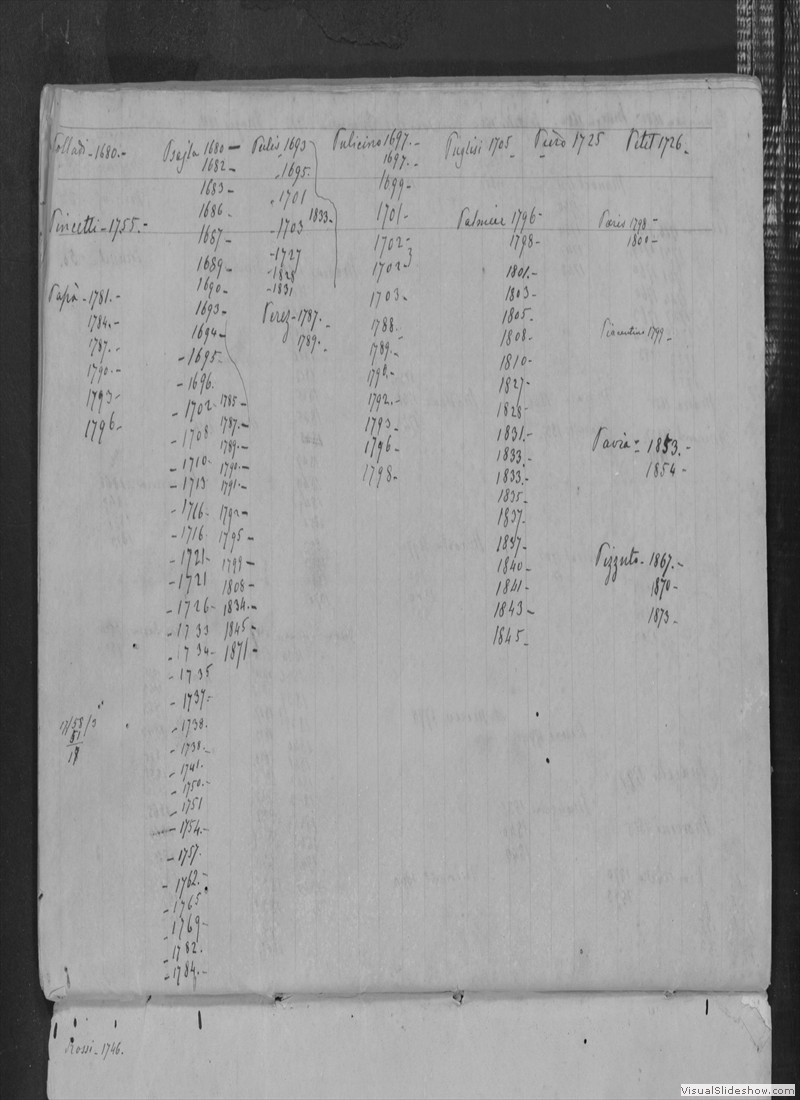 Polladi - 1680.-
Pincetti - 1755.-
Papà - 1781.-
1784.-
1787.-
1790.-
1793-
1796-
17/58/3
51
1680 -
1682 -
1683 -
1686 -
1687 -
1689 -
1690 -
1693 -
1694 -
- 1695 -
- 1696.
- 1702
- 1708
- 1710-
- 1713
- 1716-
- 1716-
- 1721-
- 1721
- 1726-
- 1733
- 1734-
- 1735
- 1737-
- 1738.
- 1738.-
- 1741.
- 1750.-
- 1751
- 1754.-
- 1757.
- 1762.-
- 1765
- 1769-
- 1782.
- 1784.-
1785 -
1787.-
1789.-
1790.-
1791.-
1792-
1795-
1799-
1808-
1834.-
1845-
1871-
Pulis 1693
- 1695.
- 1701
- 1703
1833-
- 1727
- 1828
- 1831
Perez - 1787.
1789.-
Pulicino 1697.-
1697.-
1699-
1701-
1702-
1702-
1703-
1788.
1789.-
1792.-
1793-
1796-
1798-
Puglisi 1705
Palmier 1796-
1798-
1801.-
1803-
1805-
1808-
1810-
1827-
1828-
1831.-
1833.-
1833.-
1835-
1837.
1837-
1840-
1841-
1843-
1845-
Peirò 1725
Petit 1726-
Paris 1798-
1800-
1799-
Pavia - 1853.-
1854 -
Pizzuto - 1867.-
1870-
1873-
Rossi - 1746.
VisualSlideshow.com